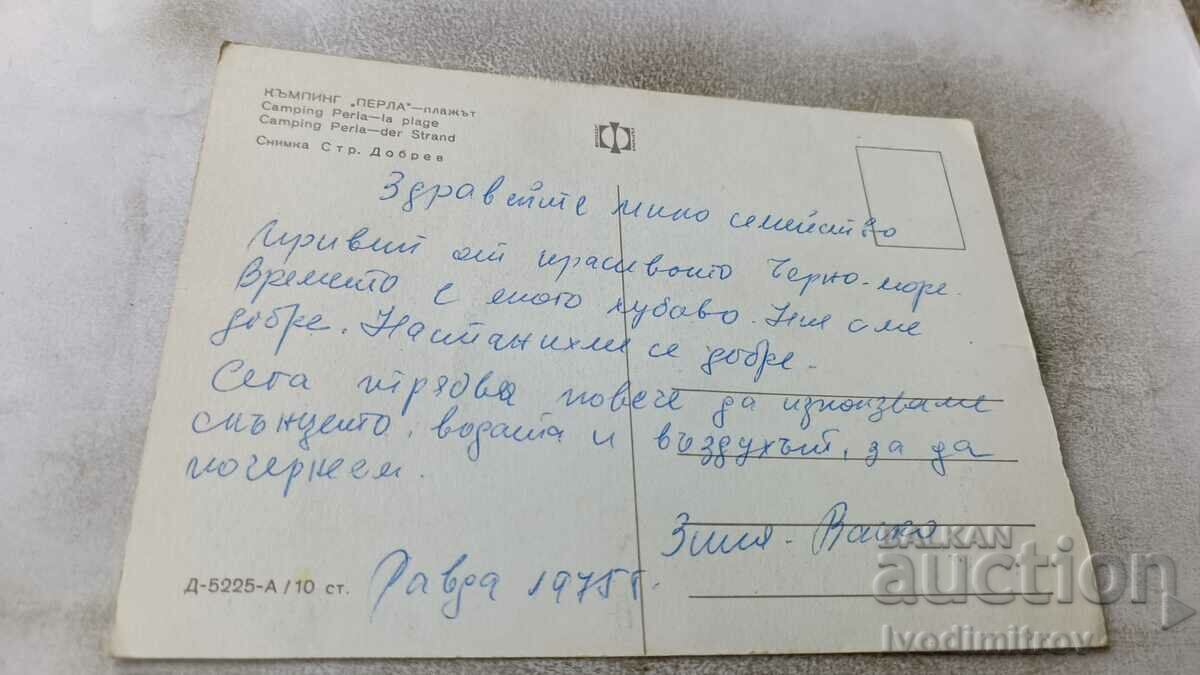 КЪМПИНГ „ПЕРЛА"—плажът
Camping Perla—la plage
Camping Perla—der Strand
Снимка Стр. Добрев
Здравейте мило семейство
Привет от красивото Черно-море.
Времето е много хубаво. Ния сме
добре. Настанихме се добре.
Сега трябва повече да използваме
слънцето, водата и въздухът, за да
почернеем.
Васка
Равда 1975 г.
Д-5225-А/10 ст.
BALKAN
auction
Ivodimitrov